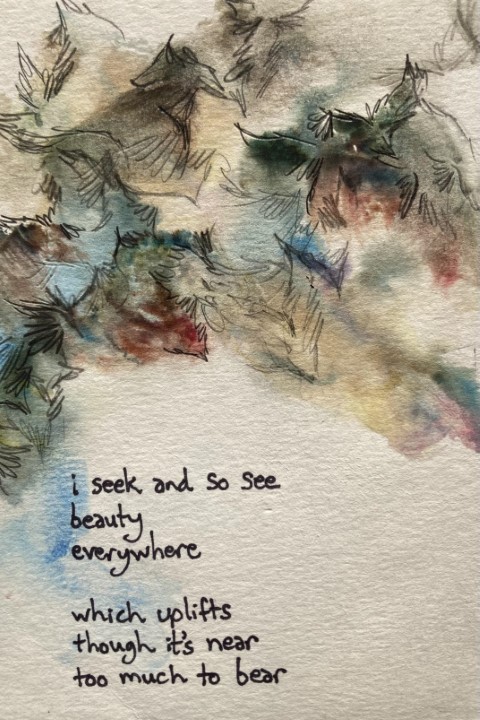 i seek and so see
beauty
everywhere
which uplifts
though it's near
too much to bear